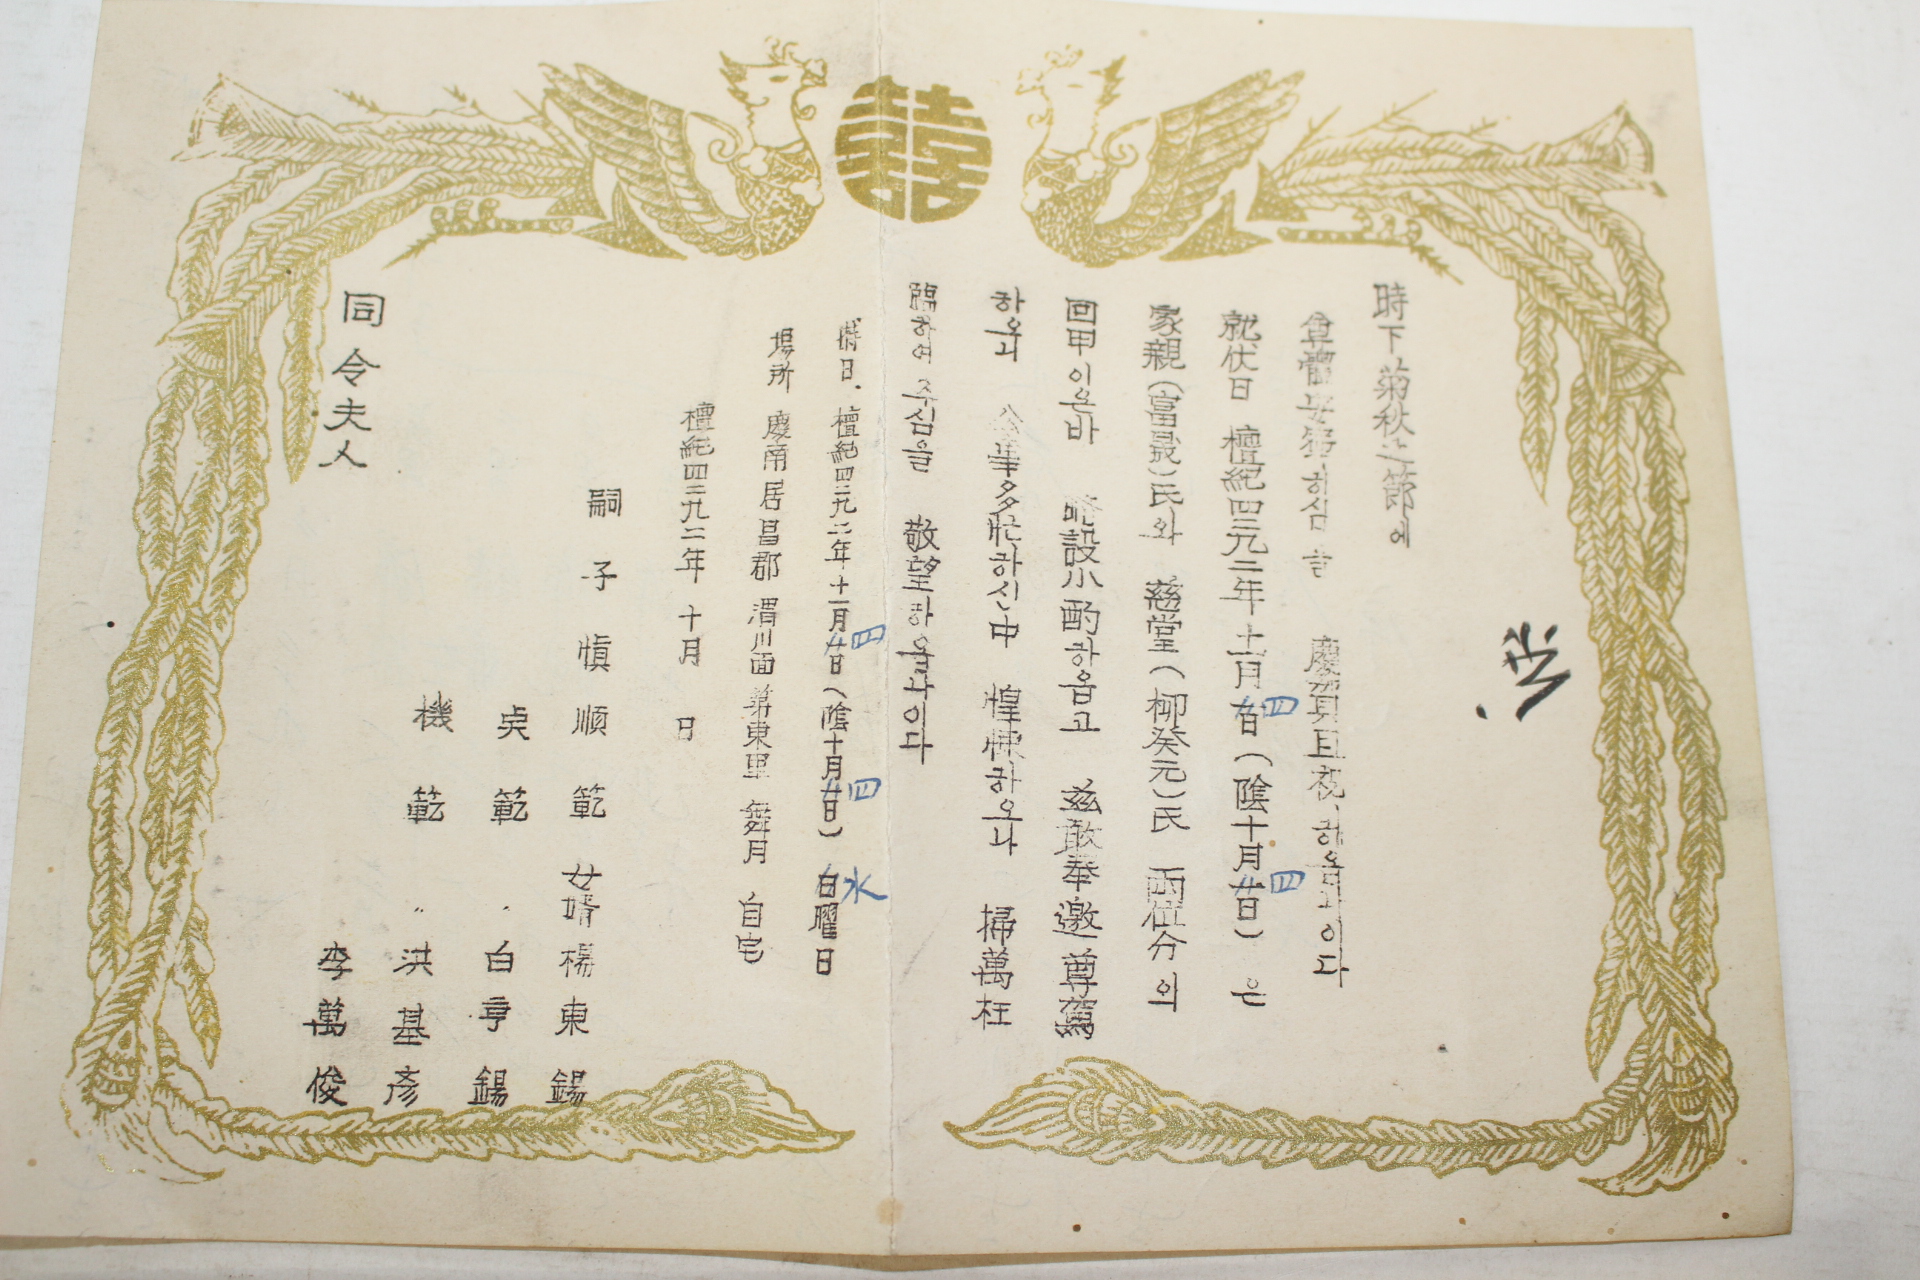 囍
時下菊秋之節에
尊體安寧하심을 慶賀且祝하옵나이다
就伏日 檀紀四二九二年 十一月廿四日(陰十月廿四日)은
家親(富晟)氏와 慈堂(柳癸元)氏 兩位分의
回甲이온바 略設小酌하옵고 玆敢奉邀尊駕
하오니 公事多忙하신中 惶悚하오나 掃萬枉
臨하여 주심을 敬望하옵나이다
時日、檀紀四二九二年十一月廿四日(陰十月廿四日) 水曜日
場所 慶南居昌郡 渭川面 東里 舞月 自宅
檀紀四二九二年 十月 日
嗣子 愼順範 女婿 楊東錫
範 〃 白亨錫
機範 〃 洪基彦
李萬俊
同令夫人